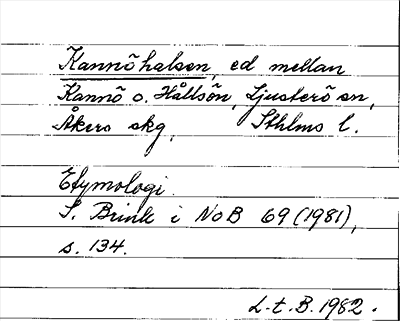 Kannöhalsen, ed mellan
Kannö o. Hållsön, Ljusterö sn,
Åkers skg, Sthlms l.
Etymologi.
S. Brink i NoB 69 (1981),
s. 134.
L.t.B. 1982.